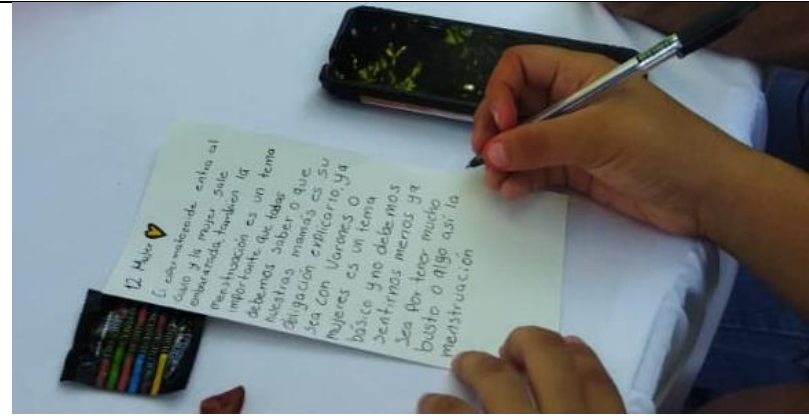 12 Mujer
El espermatozoide entra al
ovulo y la mujer sale
embarazada tambien la
menstruación es un tema
importante que todas
debemos saber o que
nuestras mamás es su
obligación explicarlo, ya
sea con Varones o
mujeres es un tema
básico y no debemos
sentirnos menos ya
sea por tener mucho
busto o algo así la
menstruación